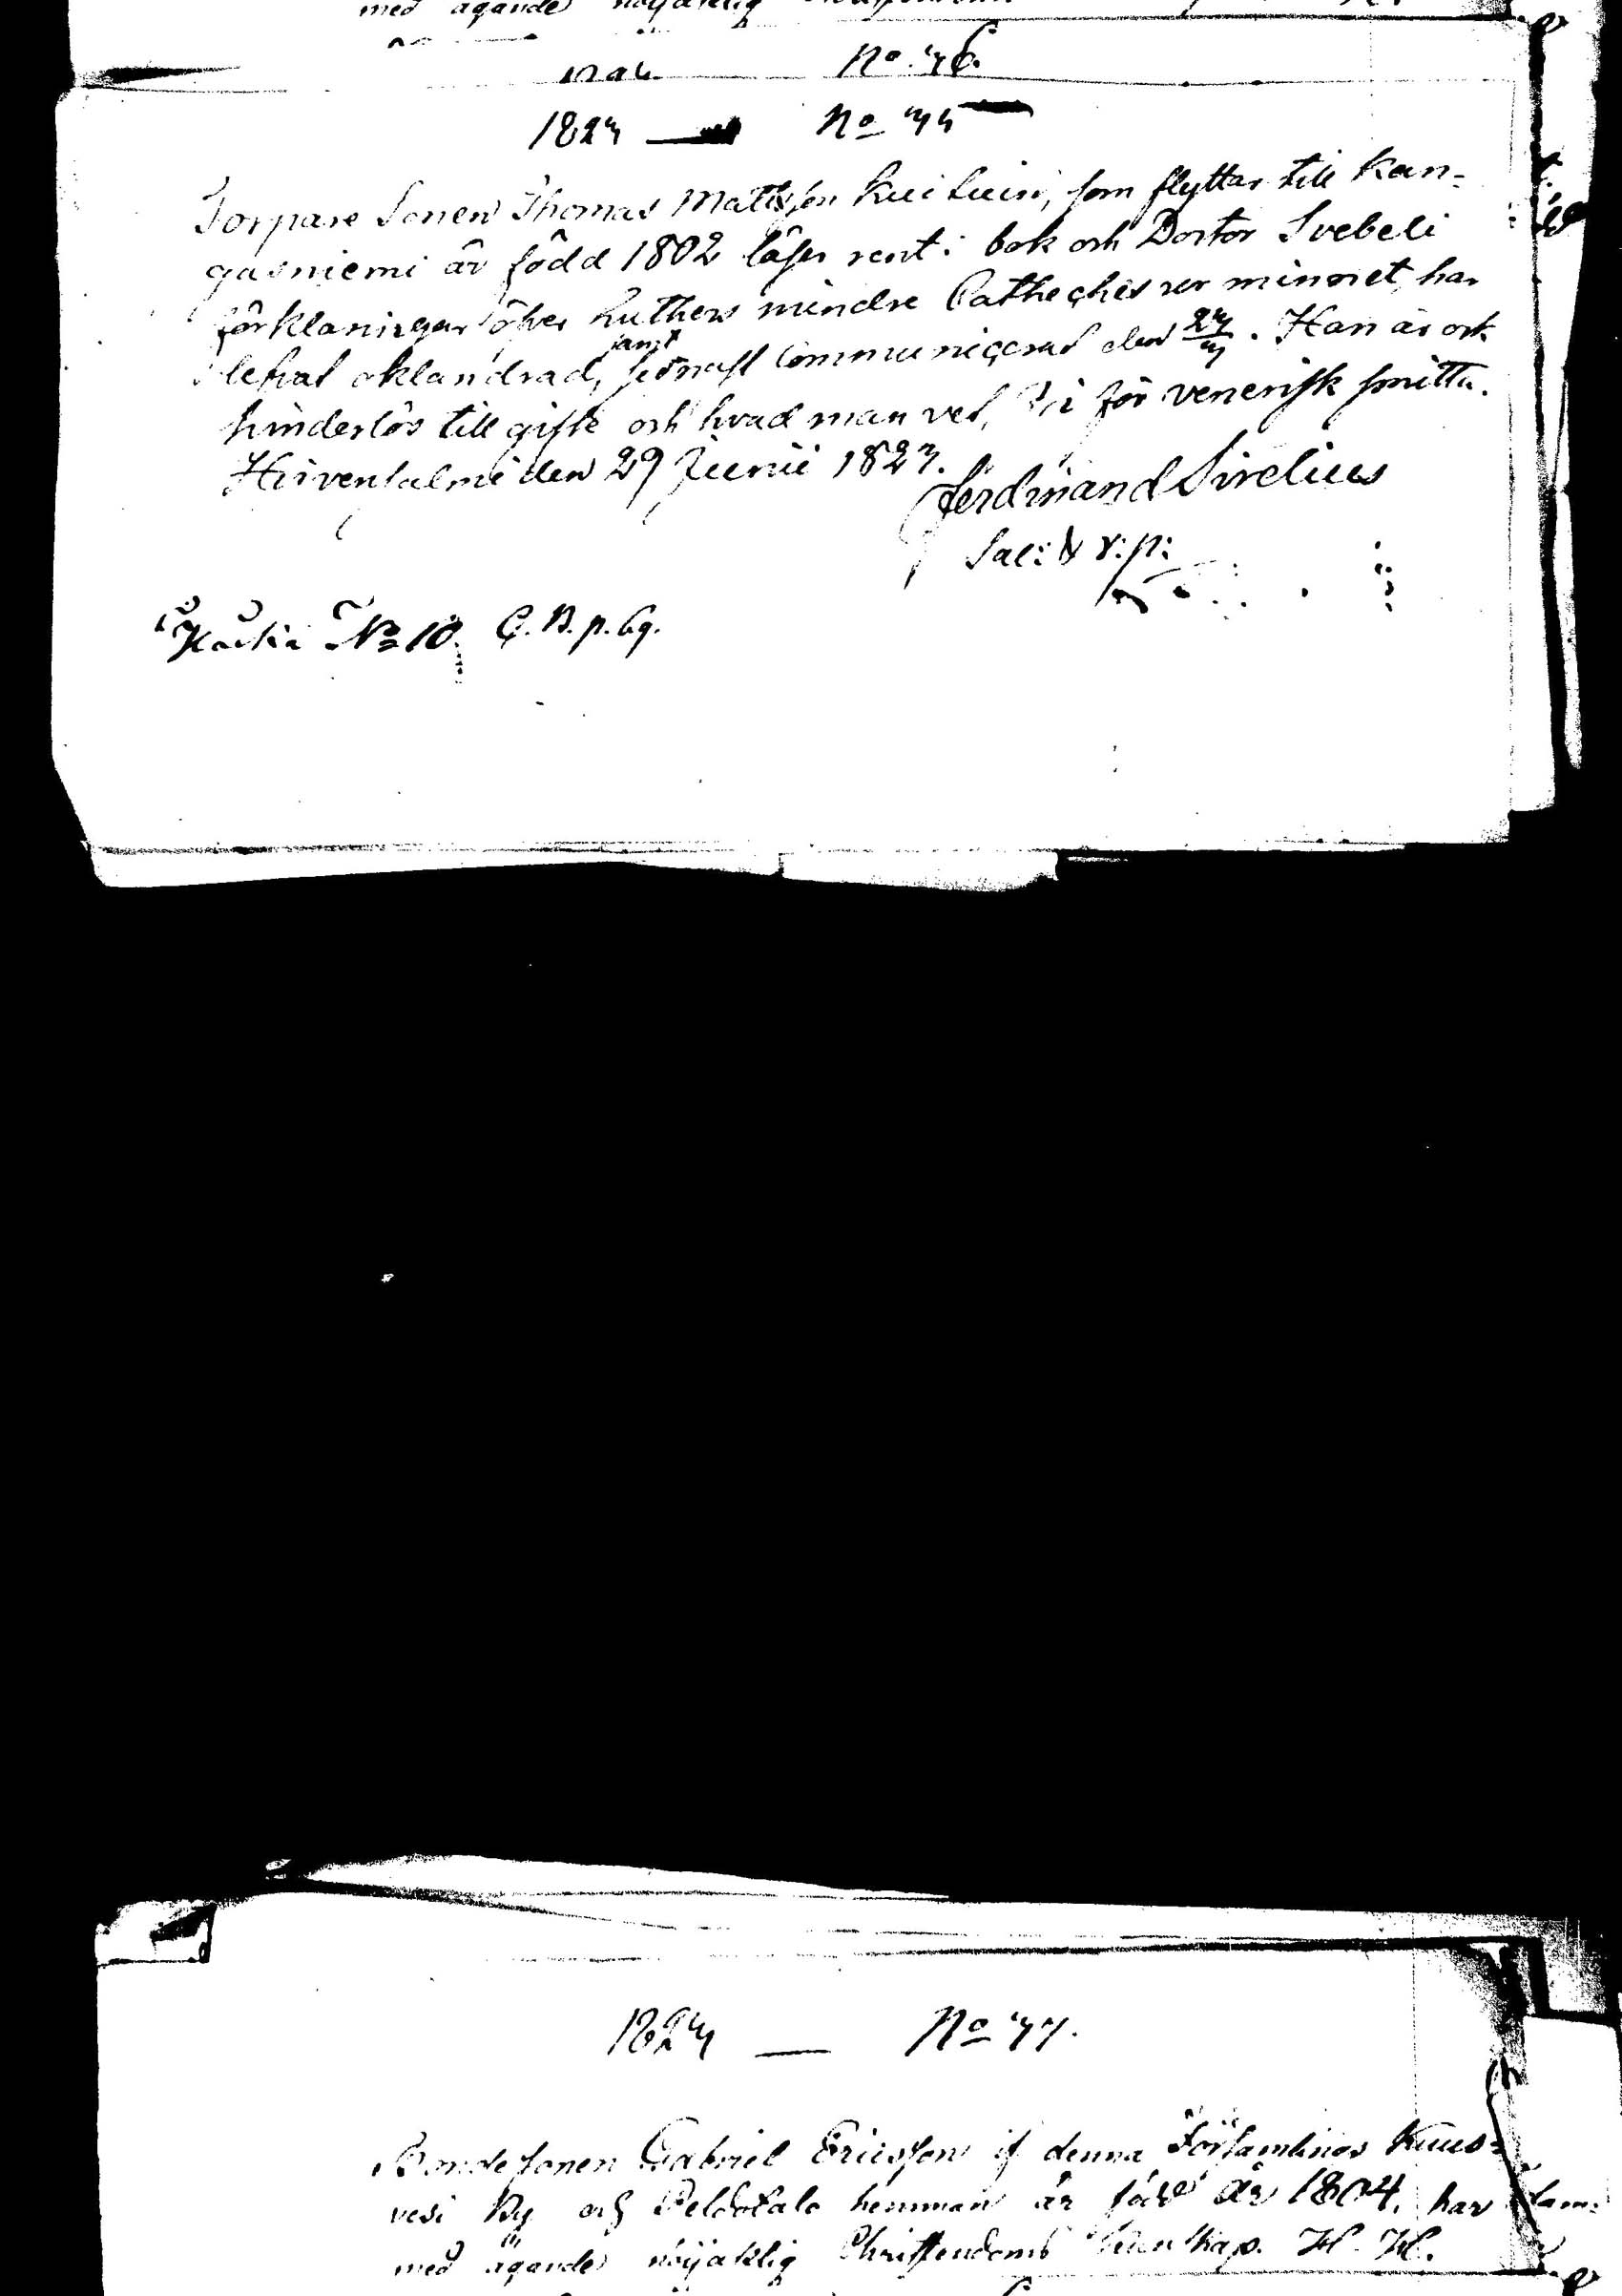 med ägande nöijaktig
No. 76.
1823 — No 75
Torpare Sonen Thomas Mattsson Kuituin, som flyttar till Kan=
gasniemi är född 1802 läser rent i bok och Doctor Svebeli
förklaningar öfver Luthers mindre Catheches ur minnet, har
lefvat oklandrad, samt sednast Communicerat den. Han är ock
hinderlös till gifte och hvad man vet, för venerisk smitta.
Hirvensalmi den 29 Junii 1823.
Ferdinand Sirelius
Sac: v: p:
No 10. C. B. p. 69.
1823 — No 77.
Bondesonen Gabriel Ericsson if denna Församlings Kuus=
vesi By och Peldotalo hemman är född År 1804, har
med ägande nöijaktig Christendoms kunskap. H. H.